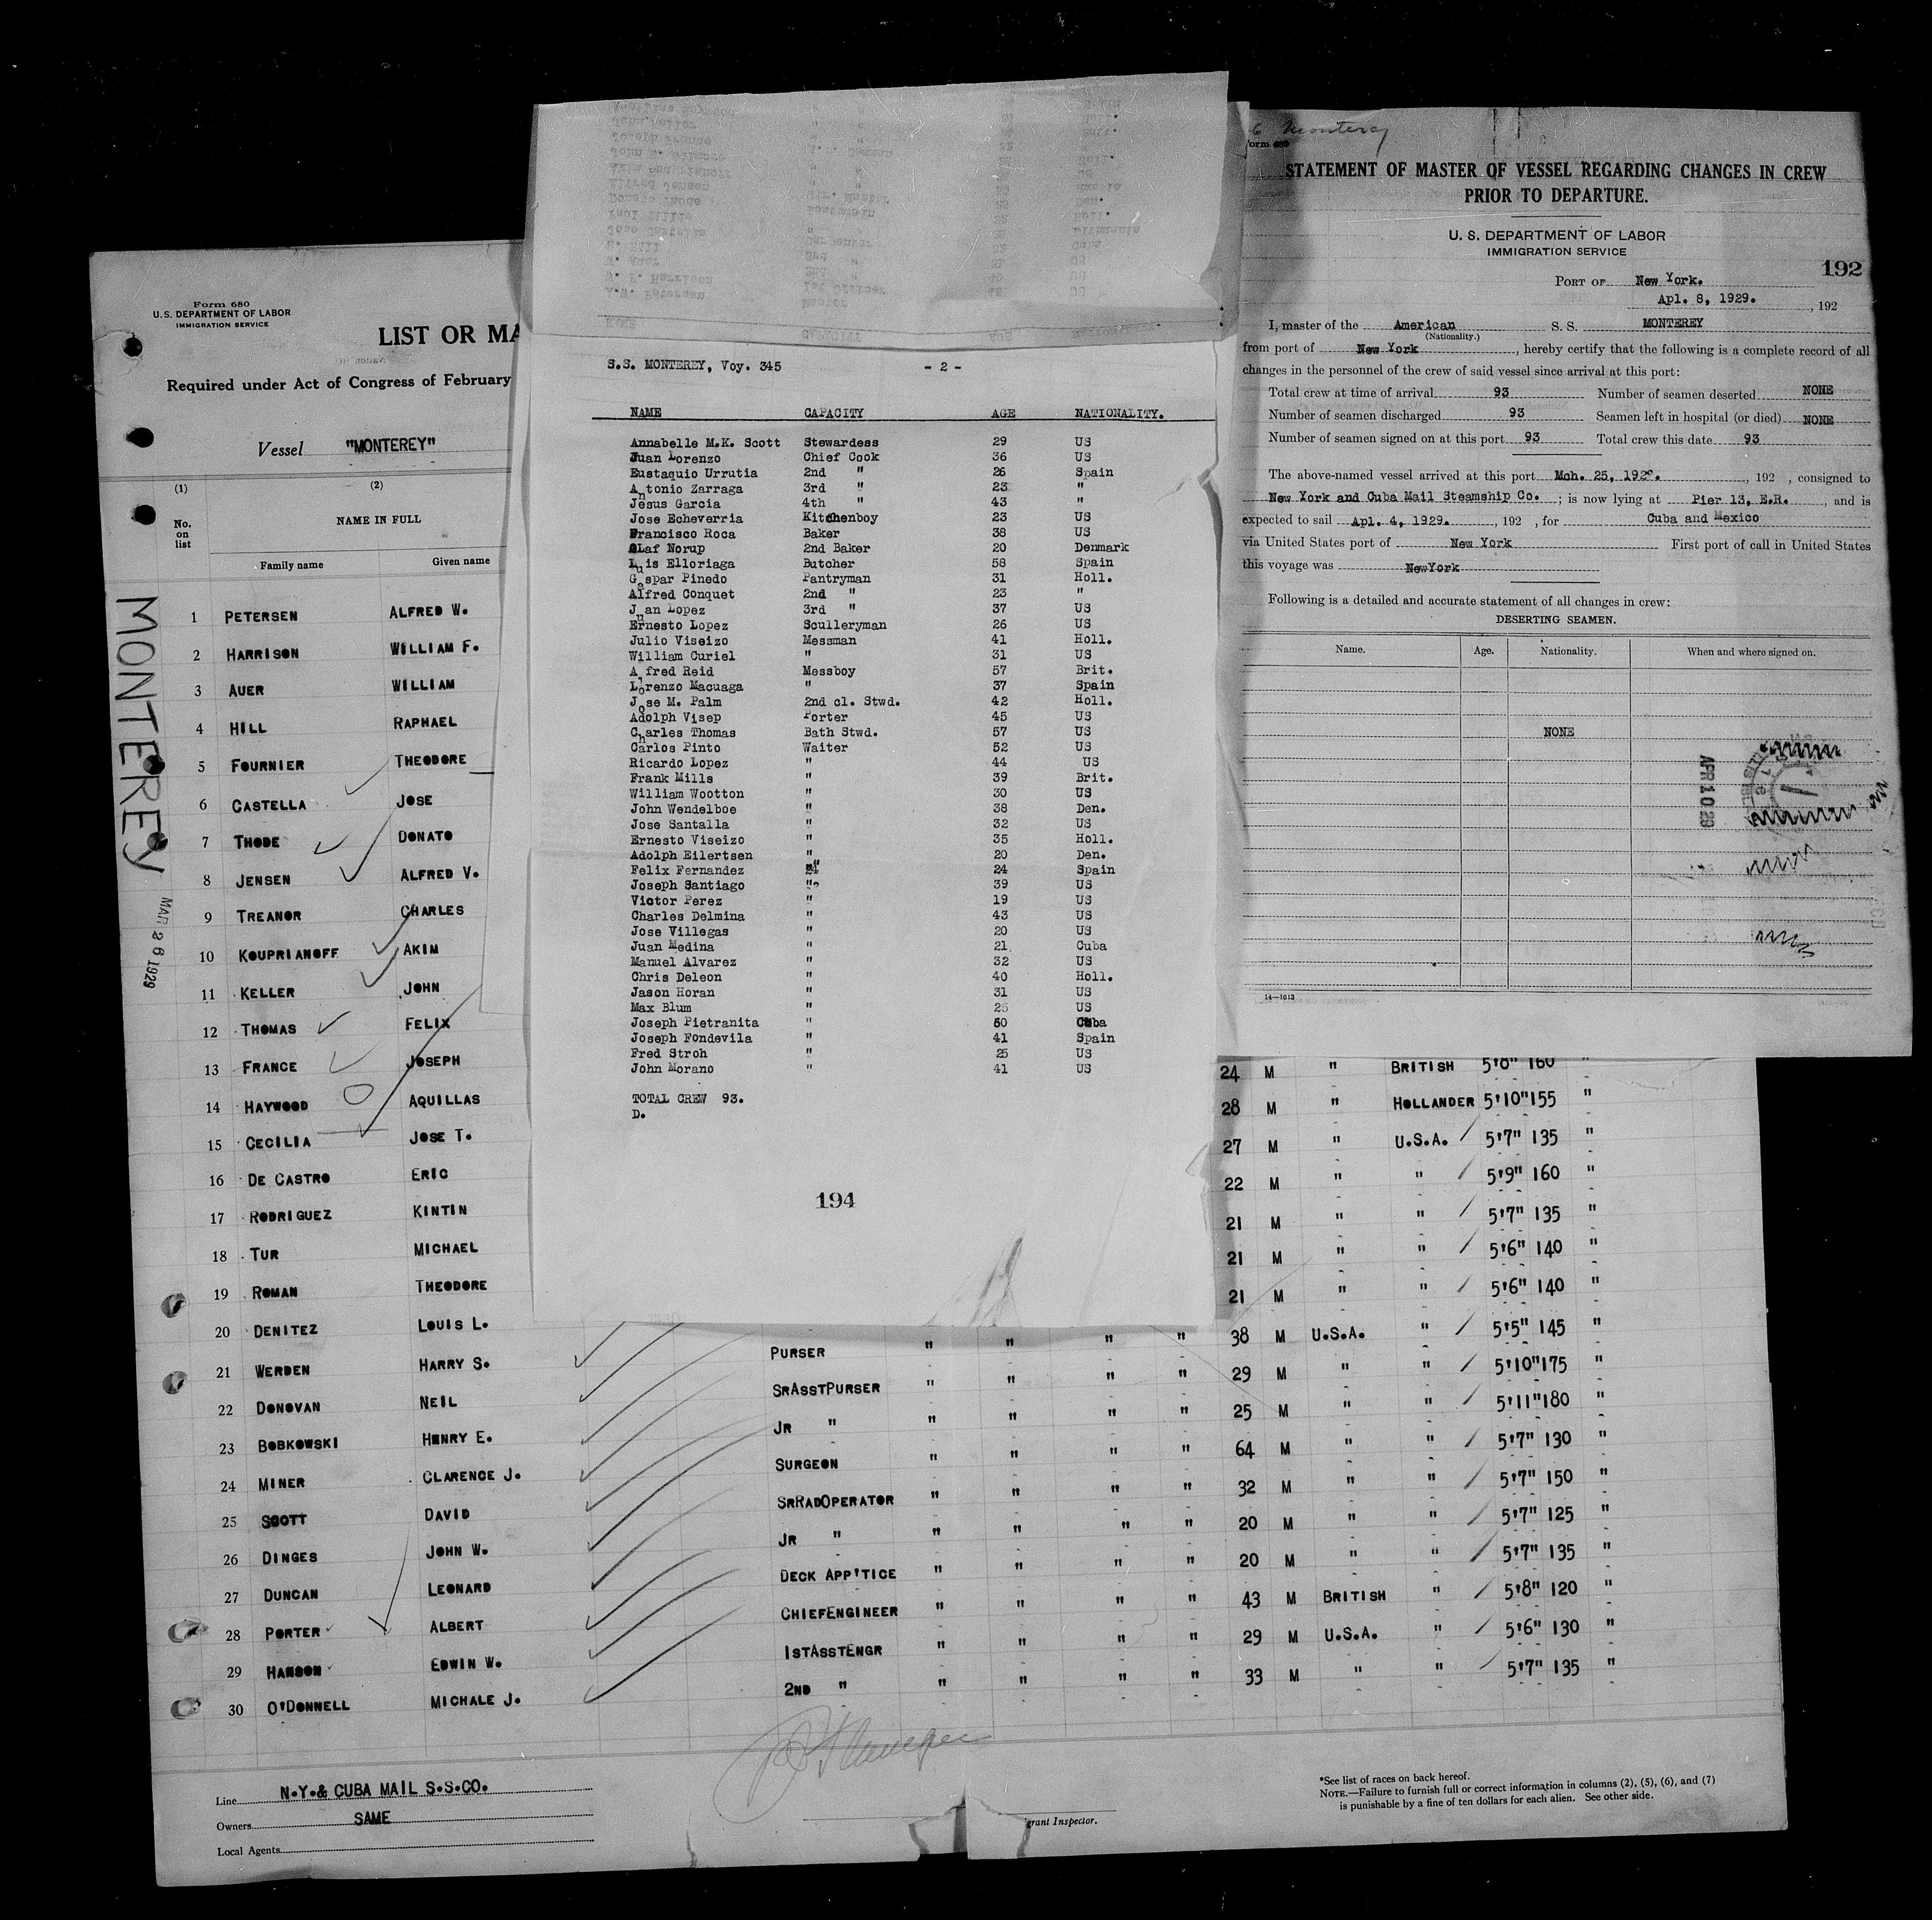 Form 680
U. S. DEPARTMENT OF LABOR
IMMIGRATION SERVICE
LIST OR MA
Required under Act of Congress of February
Vessel "MONTEREY"
(1) (2)
No. on list
NAME IN FULL
Family name Given name
MONTEREY
MAR 26 1929
1 PETERSEN ALFRED W.
2 HARRISON WILLIAM F.
3 AUER WILLIAM
4 HILL RAPHAEL
5 FOURNIER THEODORE
6 CASTELLA JOSE
7 THODE DONATO
8 JENSEN ALFRED V.
9 TREANOR CHARLES
10 KOUPRIANOFF AKIM
11 KELLER JOHN
12 THOMAS FELIX
13 FRANCE JOSEPH
14 HAYWOOD AQUILLAS
15 CECILIA JOSE T.
16 DE CASTRO ERIC
17 RODRIGUEZ KINTIN
18 TUR MICHAEL
19 ROMAN THEODORE
20 DENITEZ LOUIS L.
21 WERDEN HARRY S.
22 DONOVAN NEIL
23 BOBKOWSKI HENRY E.
24 MINER CLARENCE J.
25 SCOTT DAVID
26 DINGES JOHN W.
27 DUNCAN LEONARD
28 PORTER ALBERT
29 HANSON EDWIN W.
30 O'DONNELL MICHALE J.
24 M " BRITISH 5'8" 160 "
28 M " HOLLANDER 5'10" 155 "
27 M " U.S.A. 5'7" 135 "
22 M " " 5'9" 160 "
21 M " " 5'7" 135 "
21 M " " 5'6" 140 "
21 M " " 5'6" 140 "
PURSER " " " " 38 M U.S.A. " 5'5" 145 "
SRASSTPURSER " " " " 29 M " " 5'10" 175 "
JR " " " " " 25 M " " 5'11" 180 "
SURGEON " " " " 64 M " " 5'7" 130 "
SRRADOPERATOR " " " " 32 M " " 5'7" 150 "
JR " " " " " 20 M " " 5'7" 125 "
DECK APP'TICE " " " " 20 M " " 5'7" 135 "
CHIEFENGINEER " " " " 43 M BRITISH " 5'8" 120 "
1STASSTENGR " " " " 29 M U.S.A. " 5'6" 130 "
2ND " " " " " 33 M " " 5'7" 135 "
Line N.Y.& CUBA MAIL S.S.CO.
Owners SAME
Local Agents
grant Inspector.
*See list of races on back hereof.
NOTE.—Failure to furnish full or correct information in columns (2), (5), (6), and (7)
is punishable by a fine of ten dollars for each alien. See other side.
S.S. MONTEREY, Voy. 345 - 2 -
NAME CAPACITY AGE NATIONALITY.
Annabelle M.K. Scott Stewardess 29 US
Juan Lorenzo Chief Cook 36 US
Eustaquio Urrutia 2nd " 26 Spain
Antonio Zarraga 3rd " 23 "
Jesus Garcia 4th " 43 "
Jose Echeverria Kitchenboy 23 US
Francisco Roca Baker 38 US
Olaf Norup 2nd Baker 20 Denmark
Luis Elloriaga Butcher 58 Spain
Gaspar Pinedo Pantryman 31 Holl.
Alfred Conquet 2nd " 23 "
Juan Lopez 3rd " 37 US
Ernesto Lopez Sculleryman 26 US
Julio Viseizo Messman 41 Holl.
William Curiel " 31 US
Alfred Reid Messboy 57 Brit.
Lorenzo Macuaga " 37 Spain
Jose M. Palm 2nd cl. Stwd. 42 Holl.
Adolph Visep Porter 45 US
Charles Thomas Bath Stwd. 57 US
Carlos Pinto Waiter 52 US
Ricardo Lopez " 44 US
Frank Mills " 39 Brit.
William Wootton " 30 US
John Wendelboe " 38 Den.
Jose Santalla " 32 US
Ernesto Viseizo " 35 Holl.
Adolph Eilertsen " 20 Den.
Felix Fernandez " 24 Spain
Joseph Santiago " 39 US
Victor Perez " 19 US
Charles Delmina " 43 US
Jose Villegas " 20 US
Juan Medina " 21 Cuba
Manuel Alvarez " 32 US
Chris Deleon " 40 Holl.
Jason Horan " 31 US
Max Blum " 25 US
Joseph Pietranita " 50 Cuba
Joseph Fondevila " 41 Spain
Fred Stroh " 25 US
John Morano " 41 US
TOTAL CREW 93.
D.
194
Monterey
Form 689
STATEMENT OF MASTER OF VESSEL REGARDING CHANGES IN CREW
PRIOR TO DEPARTURE.
U. S. DEPARTMENT OF LABOR
IMMIGRATION SERVICE
192
PORT OF New York.
Apl. 8, 1929. , 192
I, master of the American S. S. MONTEREY
(Nationality.)
from port of New York, hereby certify that the following is a complete record of all
changes in the personnel of the crew of said vessel since arrival at this port:
Total crew at time of arrival 93 Number of seamen deserted NONE
Number of seamen discharged 93 Seamen left in hospital (or died) NONE
Number of seamen signed on at this port 93 Total crew this date 93
The above-named vessel arrived at this port Mch. 25, 1929. , 192 , consigned to
New York and Cuba Mail Steamship Co. ; is now lying at Pier 13, E.R. , and is
expected to sail Apl. 4, 1929. , 192 , for Cuba and Mexico
via United States port of New York First port of call in United States
this voyage was NewYork
Following is a detailed and accurate statement of all changes in crew:
DESERTING SEAMEN.
Name. Age. Nationality. When and where signed on.
NONE
APR 10 29
14—1613